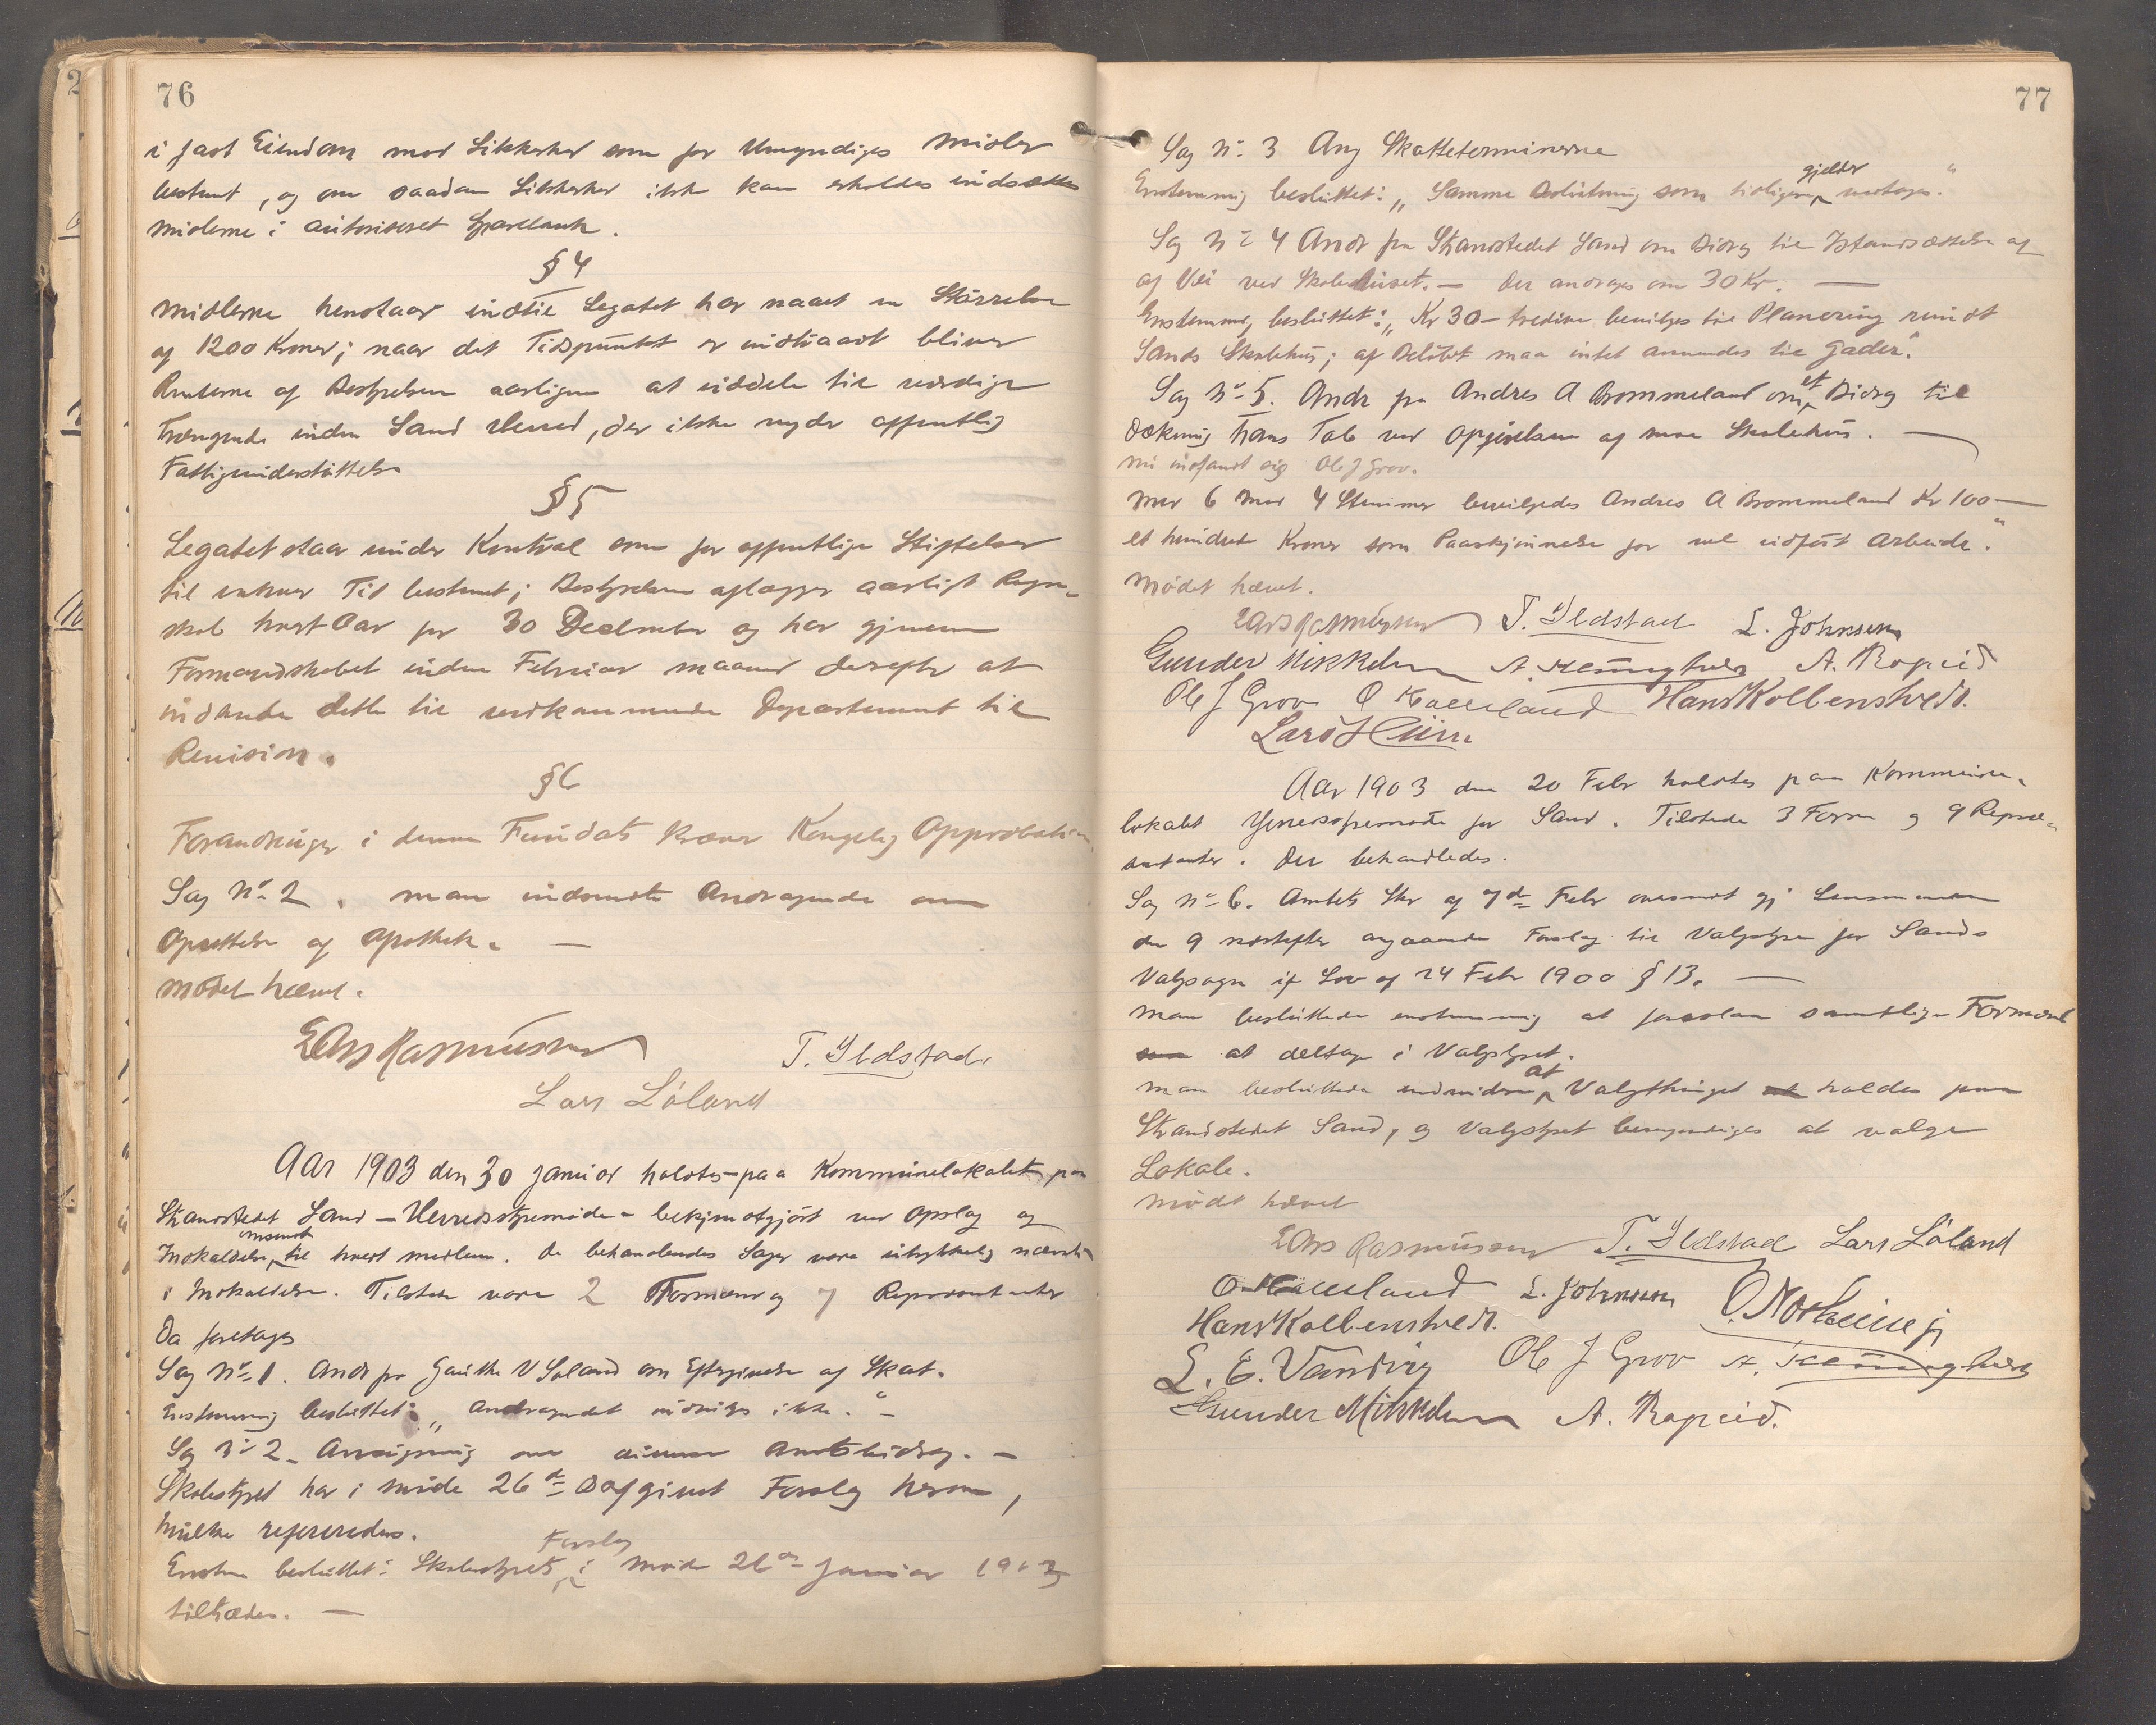 76
i fast Eiendom mod Sikkerhed som for Umyndiges Midler
bestemt, og om saadan Sikkerhed ikke kan erholdes indsættes
Midlerne i autoriseret Sparebank.
§ 4
Midlerne henstaar indtil Legatet har naaet en Størrelse
af 1200 Kroner; naar det Tidspunkt er indtraadt bliver
Renterne af Bestyrelsen aarligen at uddele til værdige
Trængende inden Sand Herred, der ikke nyder offentlig
Fattigunderstøttelse
§ 5
Legatet staar under Kontrol som for offentlige Stiftelser
til enhver Tid bestemt; Bestyrelsen aflægger aarligt Regn-
skab hvert Aar for 30 December og har gjennem
Formandskabet inden Februar Maaned derefter at
indsende dette til vedkommende Departement til
Revision.
§ 6
Forandringer i denne Fundats kræver Kongelig Approbation
Sag No 2. Man indsendte Andragende om
Oprettelse af Apothek. —
Mødet hævet.
Lars Rasmussen T. Ildstad.
Lars Löland
Aar 1903 den 30 Januar holdtes paa Kommunelokalet paa
Strandstedet Sand – Herredsstyremøde – bekjendtgjort ved Opslag og
omsendt
Indkaldelse til hvert Medlem. De behandlendes Sager vare udtrykkelig nævnt
i Indkaldelsen. Tilstede vare 2 Formænd og 7 Repræsentanter
Da foretoges
Sag No 1. Andr fra Gauthe V Soland om Eftergivelse af Skat.
Enstemmig besluttet: „Andragendet indvilges ikke." –
Sag No 2 – Ansøgning om Amtsbidrag. –
Skolestyret har i Møde 26de ds afgivet Forslag herom,
hvilke refereredes.
Forslag
Enstem besluttet: Skolestyrets i Møde 26de Januar 1903
tiltrædes. —
77
Sag No 3 Ang Skatteterminerne
gjelder
Enstemmig besluttet: „Samme Beslutning som tidligere vedtages."
Sag No 4 Andr fra Strandstedet Sand om Bidrag til Istandsættelse af
af Vei ved Skolehuset. — Der andrages om 30 Kr. —
Enstemmig besluttet: „Kr 30 – tredive bevilges til Planering rundt
Sands Skolehus; af Beløbet maa intet anvendes til Gader."
et
Sag No 5. Andr fra Andres A Brommeland om Bidrag til
Dækning hans Tab ved Opførelsen af Skolehus. —
Nu indfandt sig Ole J Grov.
Med 6 mod 4 Stemmer bevilgedes Andres A Brommeland Kr 100 —
et hundrede Kroner som Paaskjønnelse for vel udført Arbeide."
Mødet hævet.
Lars Rasmussen T. Ildstad L. Johnsen
Gunder Mikkelsen A. A. Ropeid
Ole J Grov O Hauland Hans Kolbenstvedt.
Lars H
Aar 1903 den 20 Febr holdtes paa Kommune-
lokalet Herredsstyremøde for Sand. Tilstede 3 Form og 9 Repræ-
sentanter. Der behandledes.
Sag No 6. Amtets Skr af 7de Febr oversendt gj Lensmanden
den 9 næstefter angaaende Forslag til Valgstyre for Sands
Valgsogn if Lov af 24 Febr 1900 § 13. —
Man besluttede enstemmig at foreslaa samtlige Formænd
som at deltage i Valgstyret.
at
Man besluttede endvidere Valgthinget at holdes paa
Strandstedet Sand, og Valgstyret bemyndiges at vælge
Lokale.
Mødt hævet
Lars Rasmussen T. Ildstad Lars Löland
O Hauland L. Johnsen O. Norheim jr
Hans Kolbenstvedt.
L. E. Vandvig Ole J Grov A.
Gunder Mikkelsen A. Ropeid.